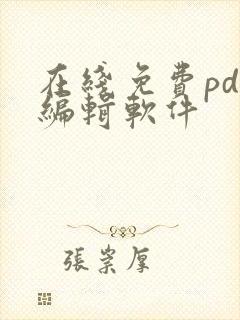 在綫免費pd
編輯軟件
張崇厚